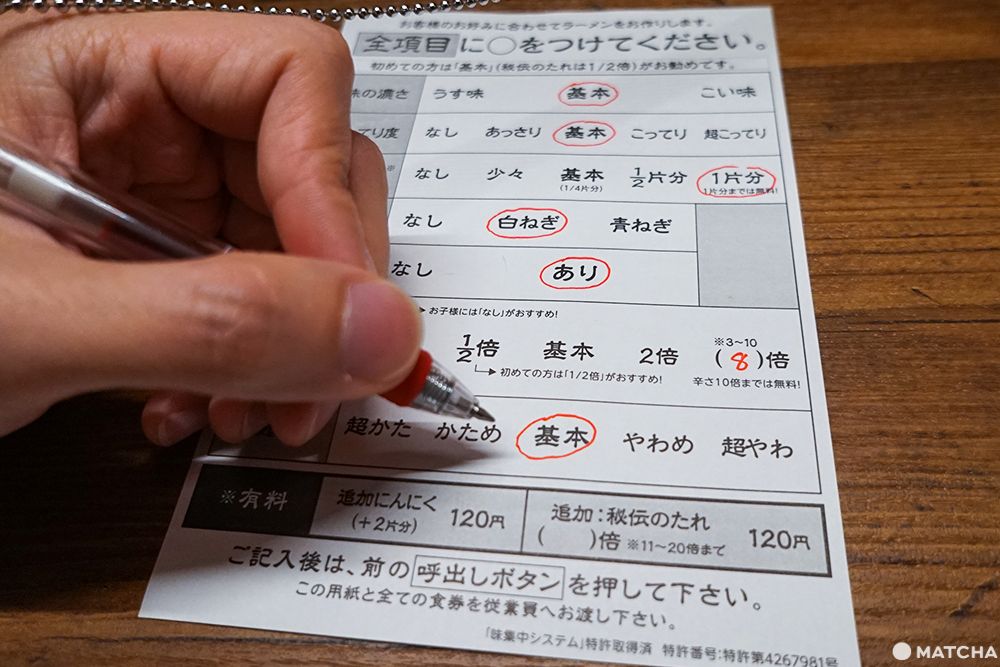 お客様のお好みに合わせてラーメンをお作りします。
全項目に○をつけてください。
初めての方は「基本」(秘伝のたれは1/2倍)がお勧めです。
味の濃さ うす味 基本 こい味
てり度 なし あっさり 基本 こってり 超こってり
※
なし 少々 基本 1/2片分 1片分
(1/4片分) 1片分までは無料!
なし 白ねぎ 青ねぎ
なし あり
お子様には「なし」がおすすめ!
※3〜10
1/2倍 基本 2倍 (8)倍
初めての方は「1/2倍」がおすすめ! 辛さ10倍までは無料!
超かた かため 基本 やわめ 超やわ
※有料 追加にんにく 120円 追加:秘伝のたれ 120円
(+2片分) ( )倍 ※11〜20倍まで
ご記入後は、前の呼出しボタンを押して下さい。
この用紙と全ての食券を従業員へお渡し下さい。
「味集中システム」特許取得済 特許番号:特許第4267981号
MATCHA